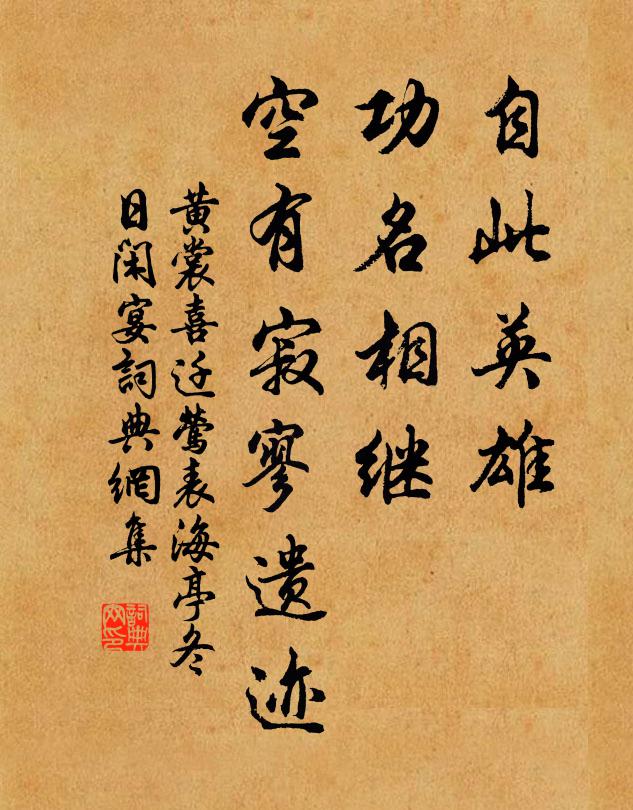 自此英雄
功名相继
空有寂寥遗迹
黄裳喜迁莺表海亭冬
日闲宴詞典網集
詞典網印